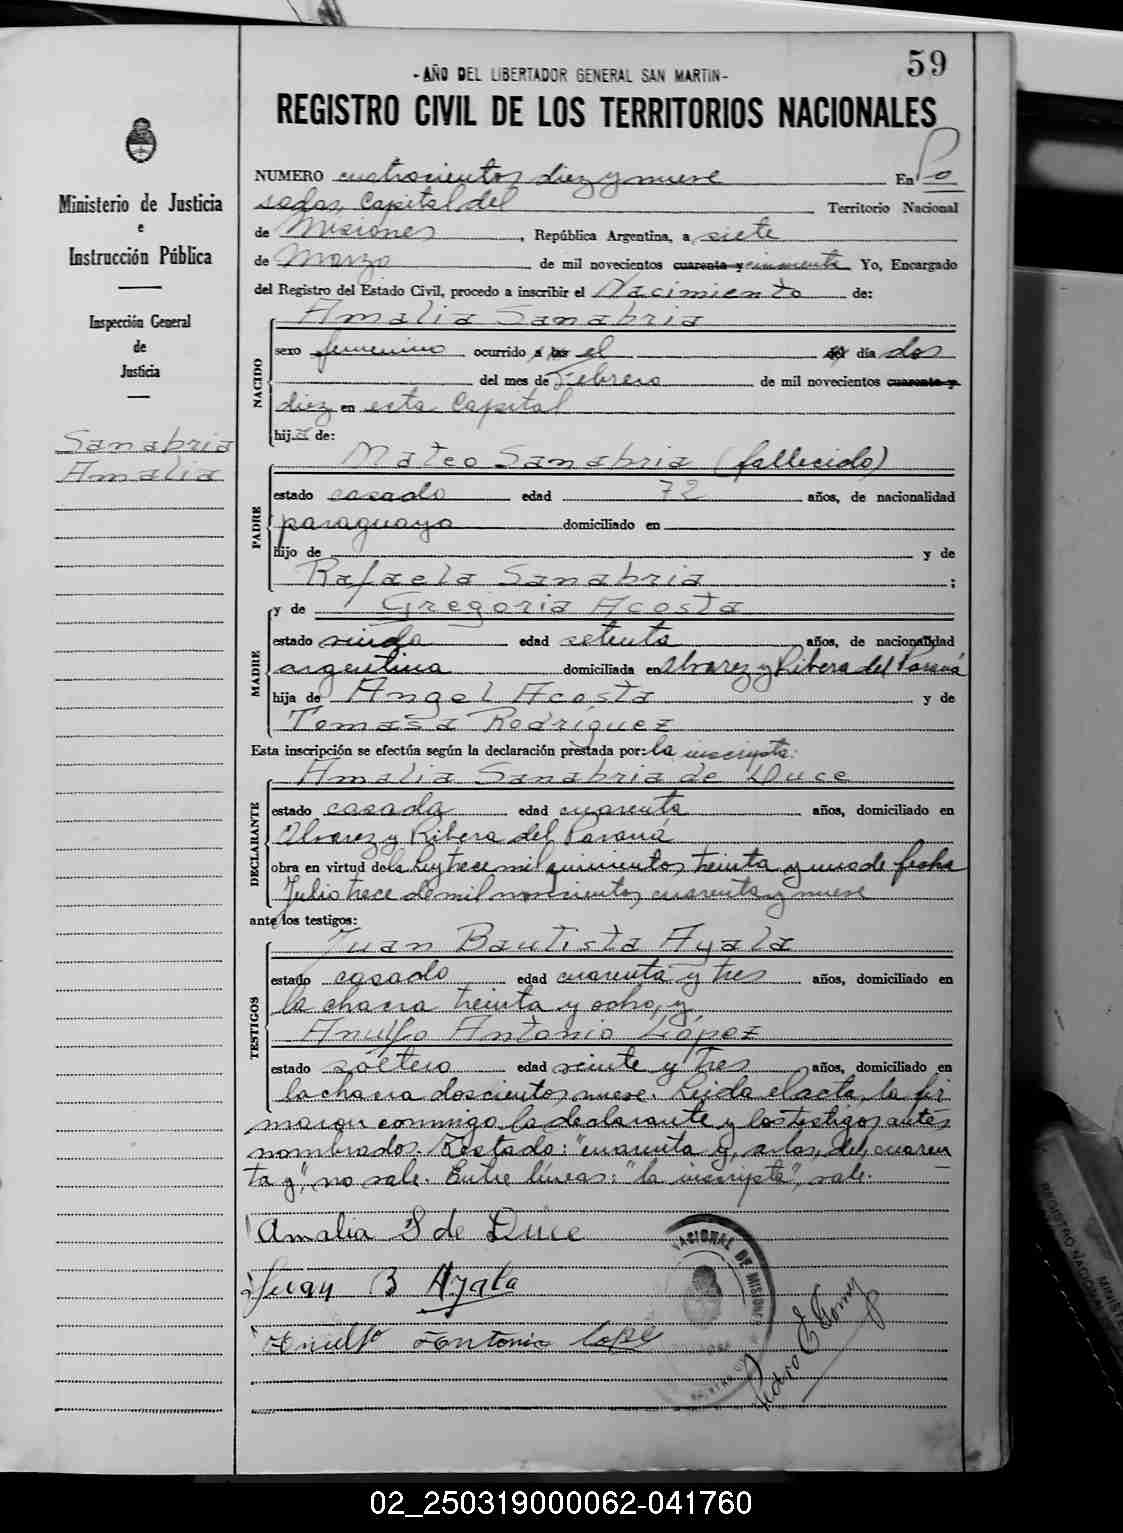 59
-AÑO DEL LIBERTADOR GENERAL SAN MARTIN-
REGISTRO CIVIL DE LOS TERRITORIOS NACIONALES
Ministerio de Justicia
e
Instrucción Pública
Inspección General
de
Justicia
Sanabria
Amalia
NUMERO cuatrocientos diez y nueve En Po
sadas, Capital del Territorio Nacional
de Misiones, República Argentina, a siete
de Marzo de mil novecientos cuarenta y cincuenta Yo, Encargado
del Registro del Estado Civil, procedo a inscribir el Nacimiento de:
NACIDO
Amalia Sanabria
sexo femenino ocurrido a las el del día dos
del mes de Febrero de mil novecientos cuarenta y
diez en esta Capital
hija de:
PADRE
Mateo Sanabria (fallecido)
estado casado edad 72 años, de nacionalidad
paraguaya domiciliado en
hijo de y de
Rafaela Sanabria ;
MADRE
y de Gregoria Acosta
estado viuda edad setenta años, de nacionalidad
argentina domiciliada en Alvarez y Ribera del Paraná
hija de Angel Acosta y de
Tomasa Rodríguez
Esta inscripción se efectúa según la declaración prestada por: la inscripta:
DECLARANTE
Amalia Sanabria de Duce
estado casada edad cuarenta años, domiciliado en
Alvarez y Ribera del Paraná
obra en virtud de la Ley trece mil quinientos treinta y uno de fecha
Julio trece de mil novecientos cuarenta y nueve
ante los testigos:
TESTIGOS
Juan Bautista Ayala
estado casado edad cuarenta y tres años, domiciliado en
la chacra treinta y ocho, y
Anulfo Antonio López
estado soltero edad veinte y tres años, domiciliado en
la chacra doscientos nueve. Leida el acta, la fir
maron conmigo la declarante y los testigos antes
nombrados. Testado: "cuarenta y, a las, del, cuaren
ta y", no vale. Entre líneas: "la inscripta", vale.
Amalia S de Duce
Juan B Ayala
Anulfo Antonio Lopez
NACIONAL DE MISIONES
02_250319000062-041760